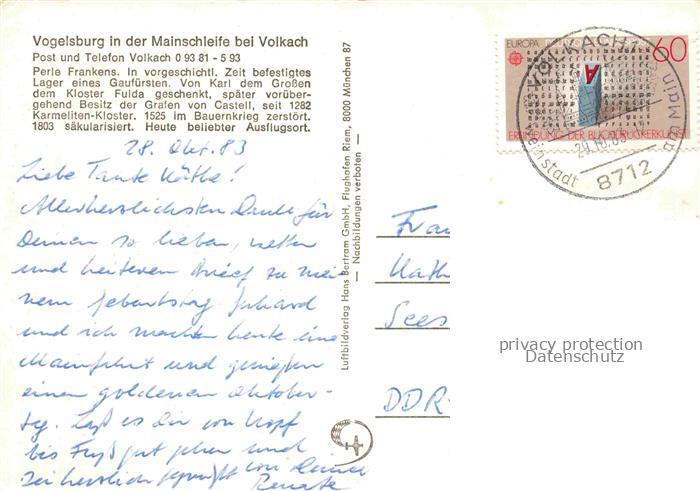 Vogelsburg in der Mainschleife bei Volkach
Post und Telefon Volkach 0 93 81 - 5 93
Perle Frankens. In vorgeschichtl. Zeit befestigtes
Lager eines Gaufürsten. Von Karl dem Großen
dem Kloster Fulda geschenkt, später vorüber-
gehend Besitz der Grafen von Castell, seit 1282
Karmeliten-Kloster. 1525 im Bauernkrieg zerstört.
1803 säkularisiert. Heute beliebter Ausflugsort.
28. Okt. 83
Liebe Tante Käthe!
Allerherzlichsten Dank für
Deinen so lieben, netten
und heiteren Brief zu mei-
nem Geburtstag.
und ich machen heute eine
Mainfahrt und genießen
einen goldenen Oktober-
tag. Laß es Dir von Kopf
bis Fuß gut gehen und
Sei herzlich gegrüßt von Deiner
Renate
Luftbildverlag Hans Bertram GmbH, Flughafen Riem, 8000 München 87
— Nachbildungen verboten —
EUROPA
60
A
ERFINDUNG DER BUCHDRUCKERKUNST
VOLKACH
8712
Frau
Käth
Sees
DDR-
privacy protection
Datenschutz